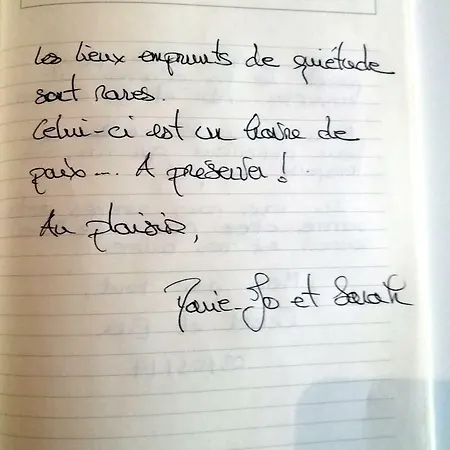 Les lieux emprunts de quiétude
sont rares.
Celui-ci est un havre de
paix... A preserver !
Au plaisir,
Marie-Jo et Sarah